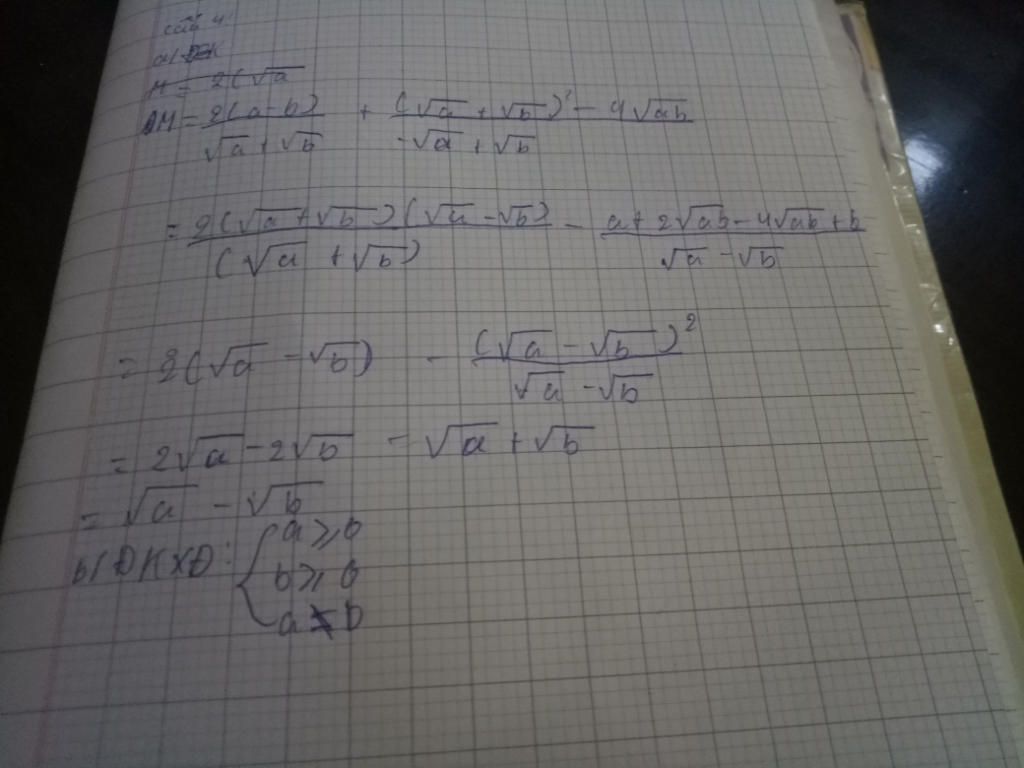 câu 4:
a/ ĐK
M = 2(√a
M = 2(a-b)/(√a + √b) + ((√a + √b)² - 4√ab)/(-√a + √b)
= 2(√a + √b)(√a - √b)/(√a + √b) - (a + 2√ab - 4√ab + b)/(√a - √b)
= 2(√a - √b) - (√a - √b)²/(√a - √b)
= 2√a - 2√b - √a + √b
= √a - √b
b/ ĐKXĐ: { a ≥ 0
b ≥ 0
a ≠ b